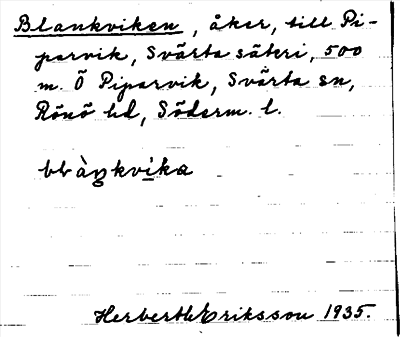 Blankviken, åker, till Pi-
parvik, Svärta säteri, 500
m. Ö Piparvik, Svärta sn,
Rönö hd, Söderm. l.
blàŋkvi̇ka
Herbert Eriksson 1935.